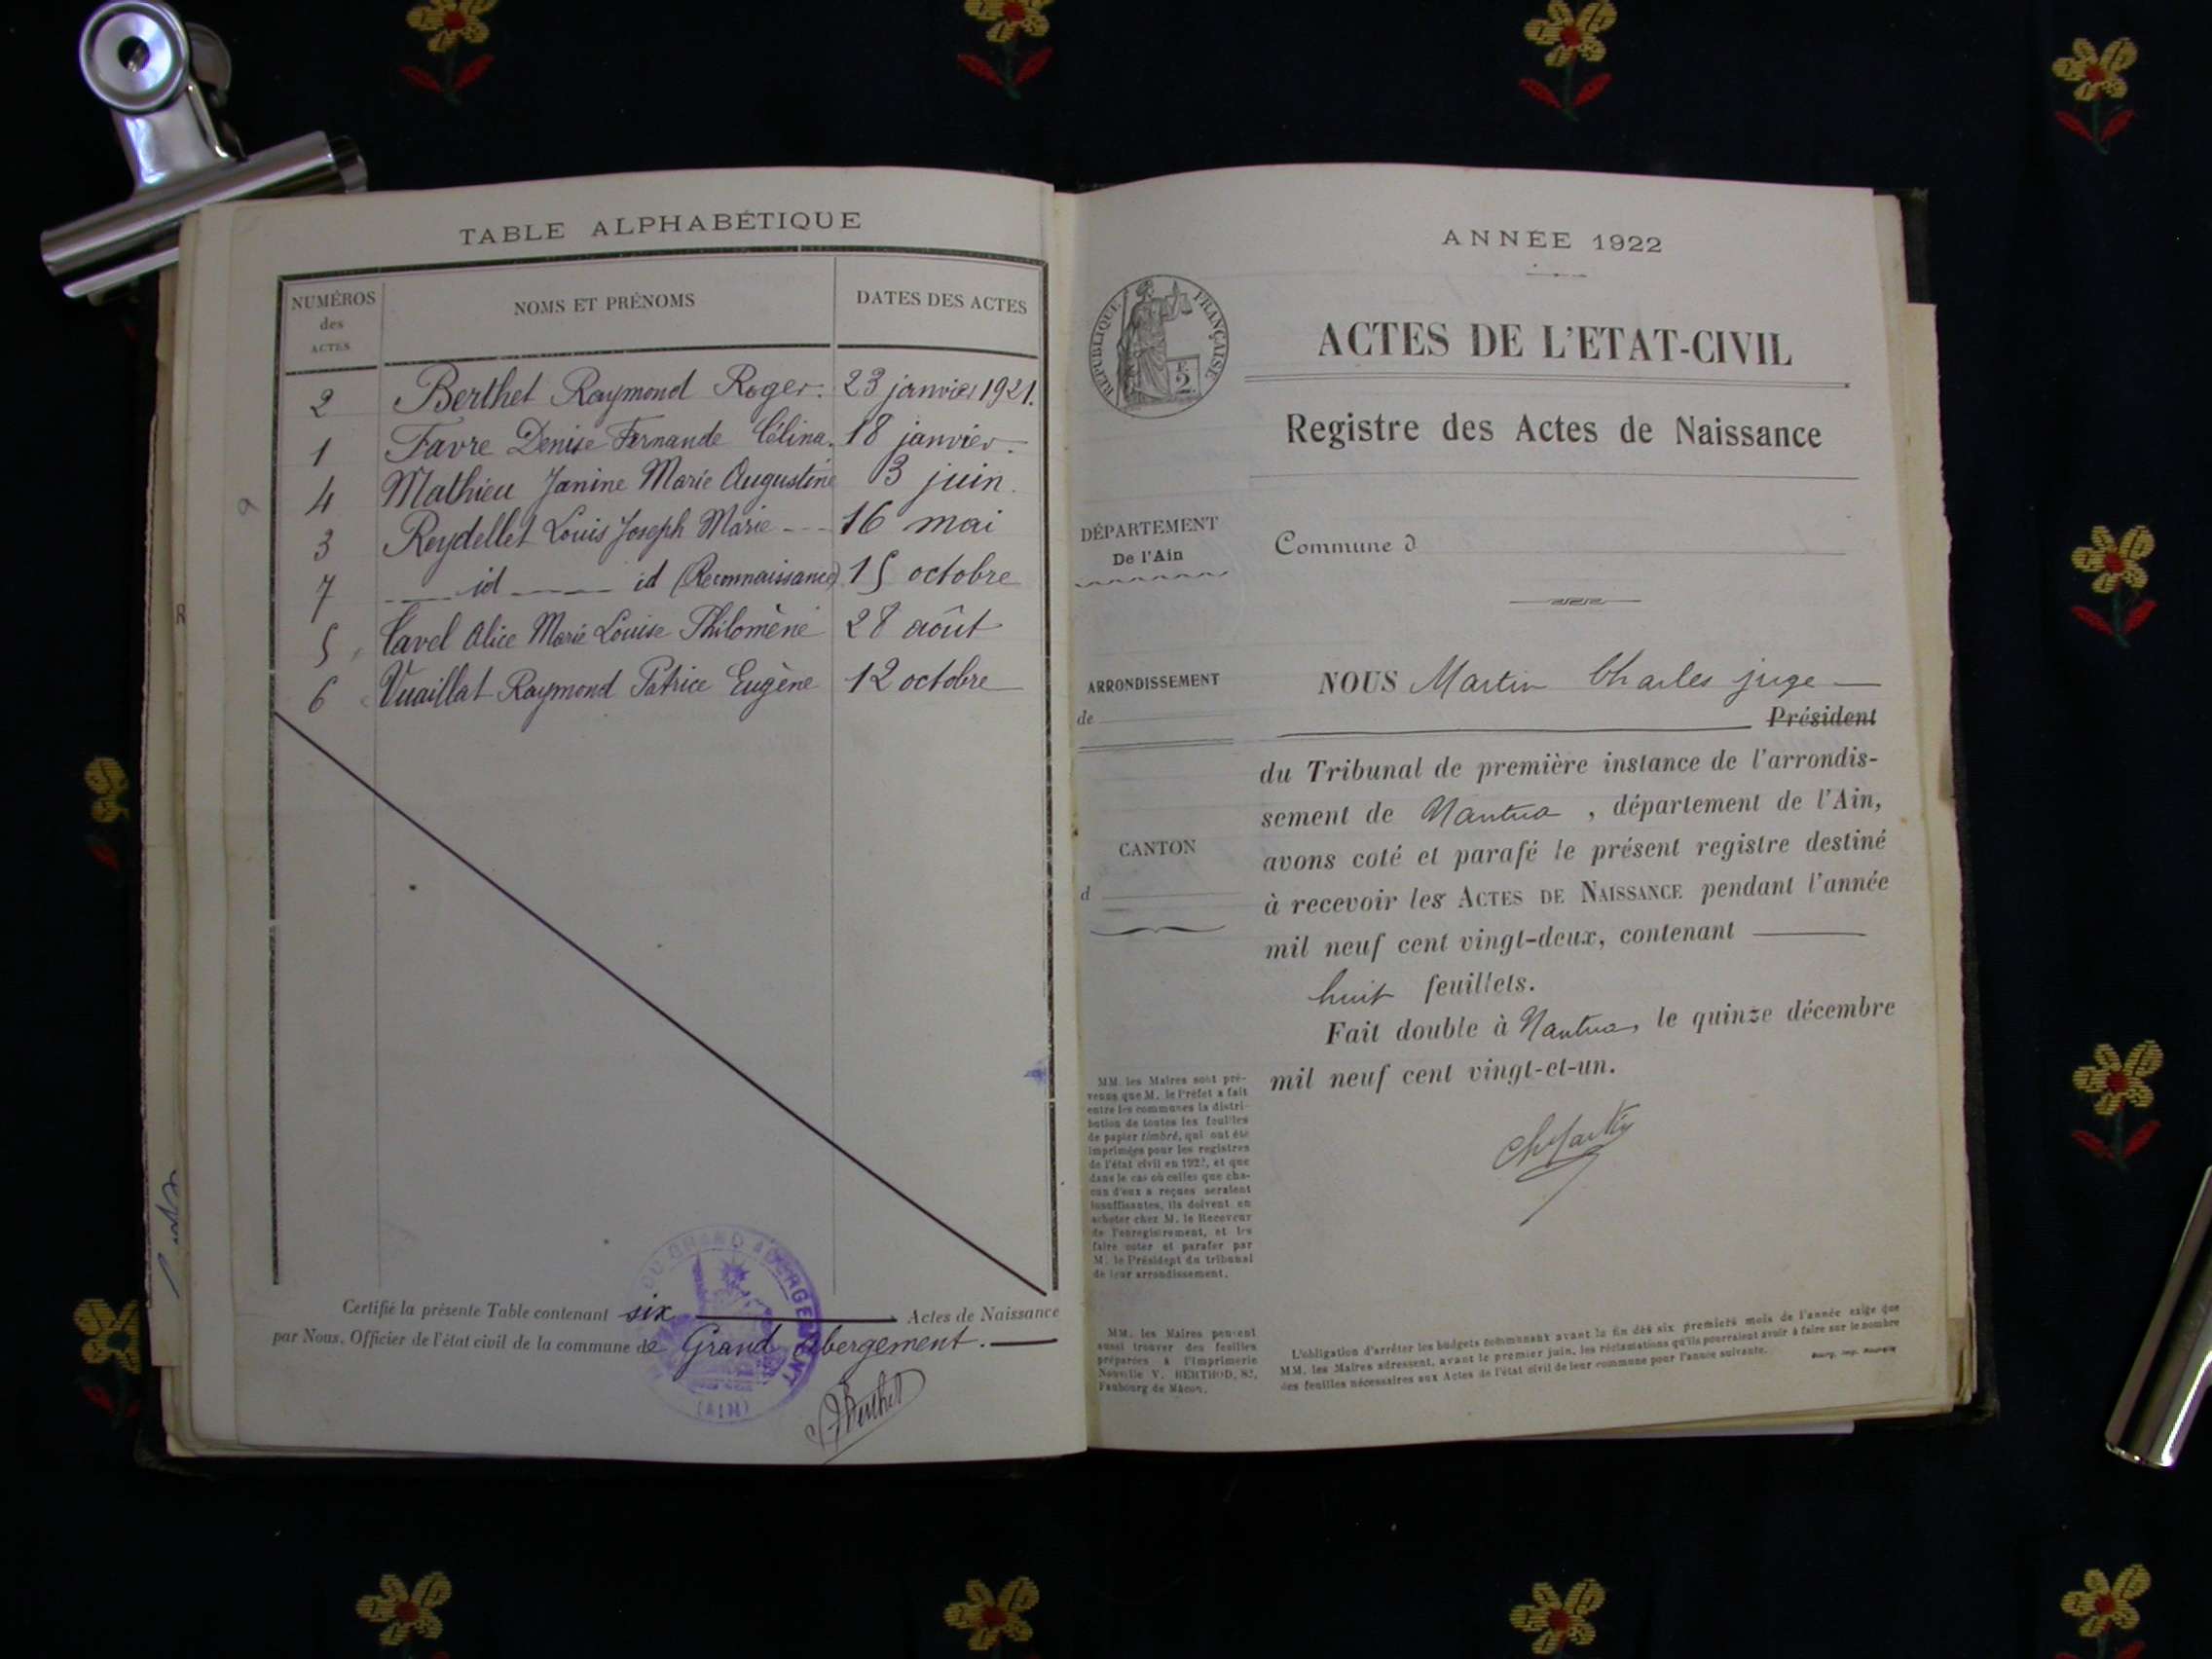 TABLE ALPHABÉTIQUE
NUMÉROS des ACTES
NOMS ET PRÉNOMS
DATES DES ACTES
2 Berthet Raymond Roger. 23 janvier 1921.
1 Favre Denise Fernande Célina. 18 janvier.
4 Mathieu Janine Marie Augustine 3 juin.
3 Reydellet Louis Joseph Marie --- 16 mai
7 id id (Reconnaissance) 15 octobre
5 Cavel Alice Marie Louise Philomène 28 août
6 Vuaillat Raymond Patrice Eugène 12 octobre
Certifié la présente Table contenant six Actes de Naissance
par Nous, Officier de l'état civil de la commune de Grand Abergement.
(AIN)
Berthet
ANNÉE 1922
RÉPUBLIQUE FRANÇAISE
2
ACTES DE L'ETAT-CIVIL
Registre des Actes de Naissance
DÉPARTEMENT
De l'Ain
Commune d
ARRONDISSEMENT
de
CANTON
d
NOUS Martin Charles juge
Président
du Tribunal de première instance de l'arrondis-
sement de Nantua, département de l'Ain,
avons coté et parafé le présent registre destiné
à recevoir les ACTES DE NAISSANCE pendant l'année
mil neuf cent vingt-deux, contenant
huit feuillets.
Fait double à Nantua, le quinze décembre
mil neuf cent vingt-et-un.
Ch Martin
MM. les Maires sont pré-
venus que M. le Préfet a fait
entre les communes la distri-
bution de toutes les feuilles
de papier timbré, qui ont été
imprimées pour les registres
de l'état civil en 1922, et que
dans le cas où celles que cha-
cun d'eux a reçues seraient
insuffisantes, ils doivent en
acheter chez M. le Receveur
de l'enregistrement, et les
faire coter et parafer par
M. le Président du tribunal
de leur arrondissement.
MM. les Maires peuvent
aussi trouver des feuilles
préparées à l'Imprimerie
Nouvelle V. BERTHOD, 82,
Faubourg de Mâcon.
L'obligation d'arrêter les budgets communaux avant la fin des six premiers mois de l'année exige que
MM. les Maires adressent, avant le premier juin, les réclamations qu'ils pourraient avoir à faire sur le nombre
des feuilles nécessaires aux Actes de l'état civil de leur commune pour l'année suivante.